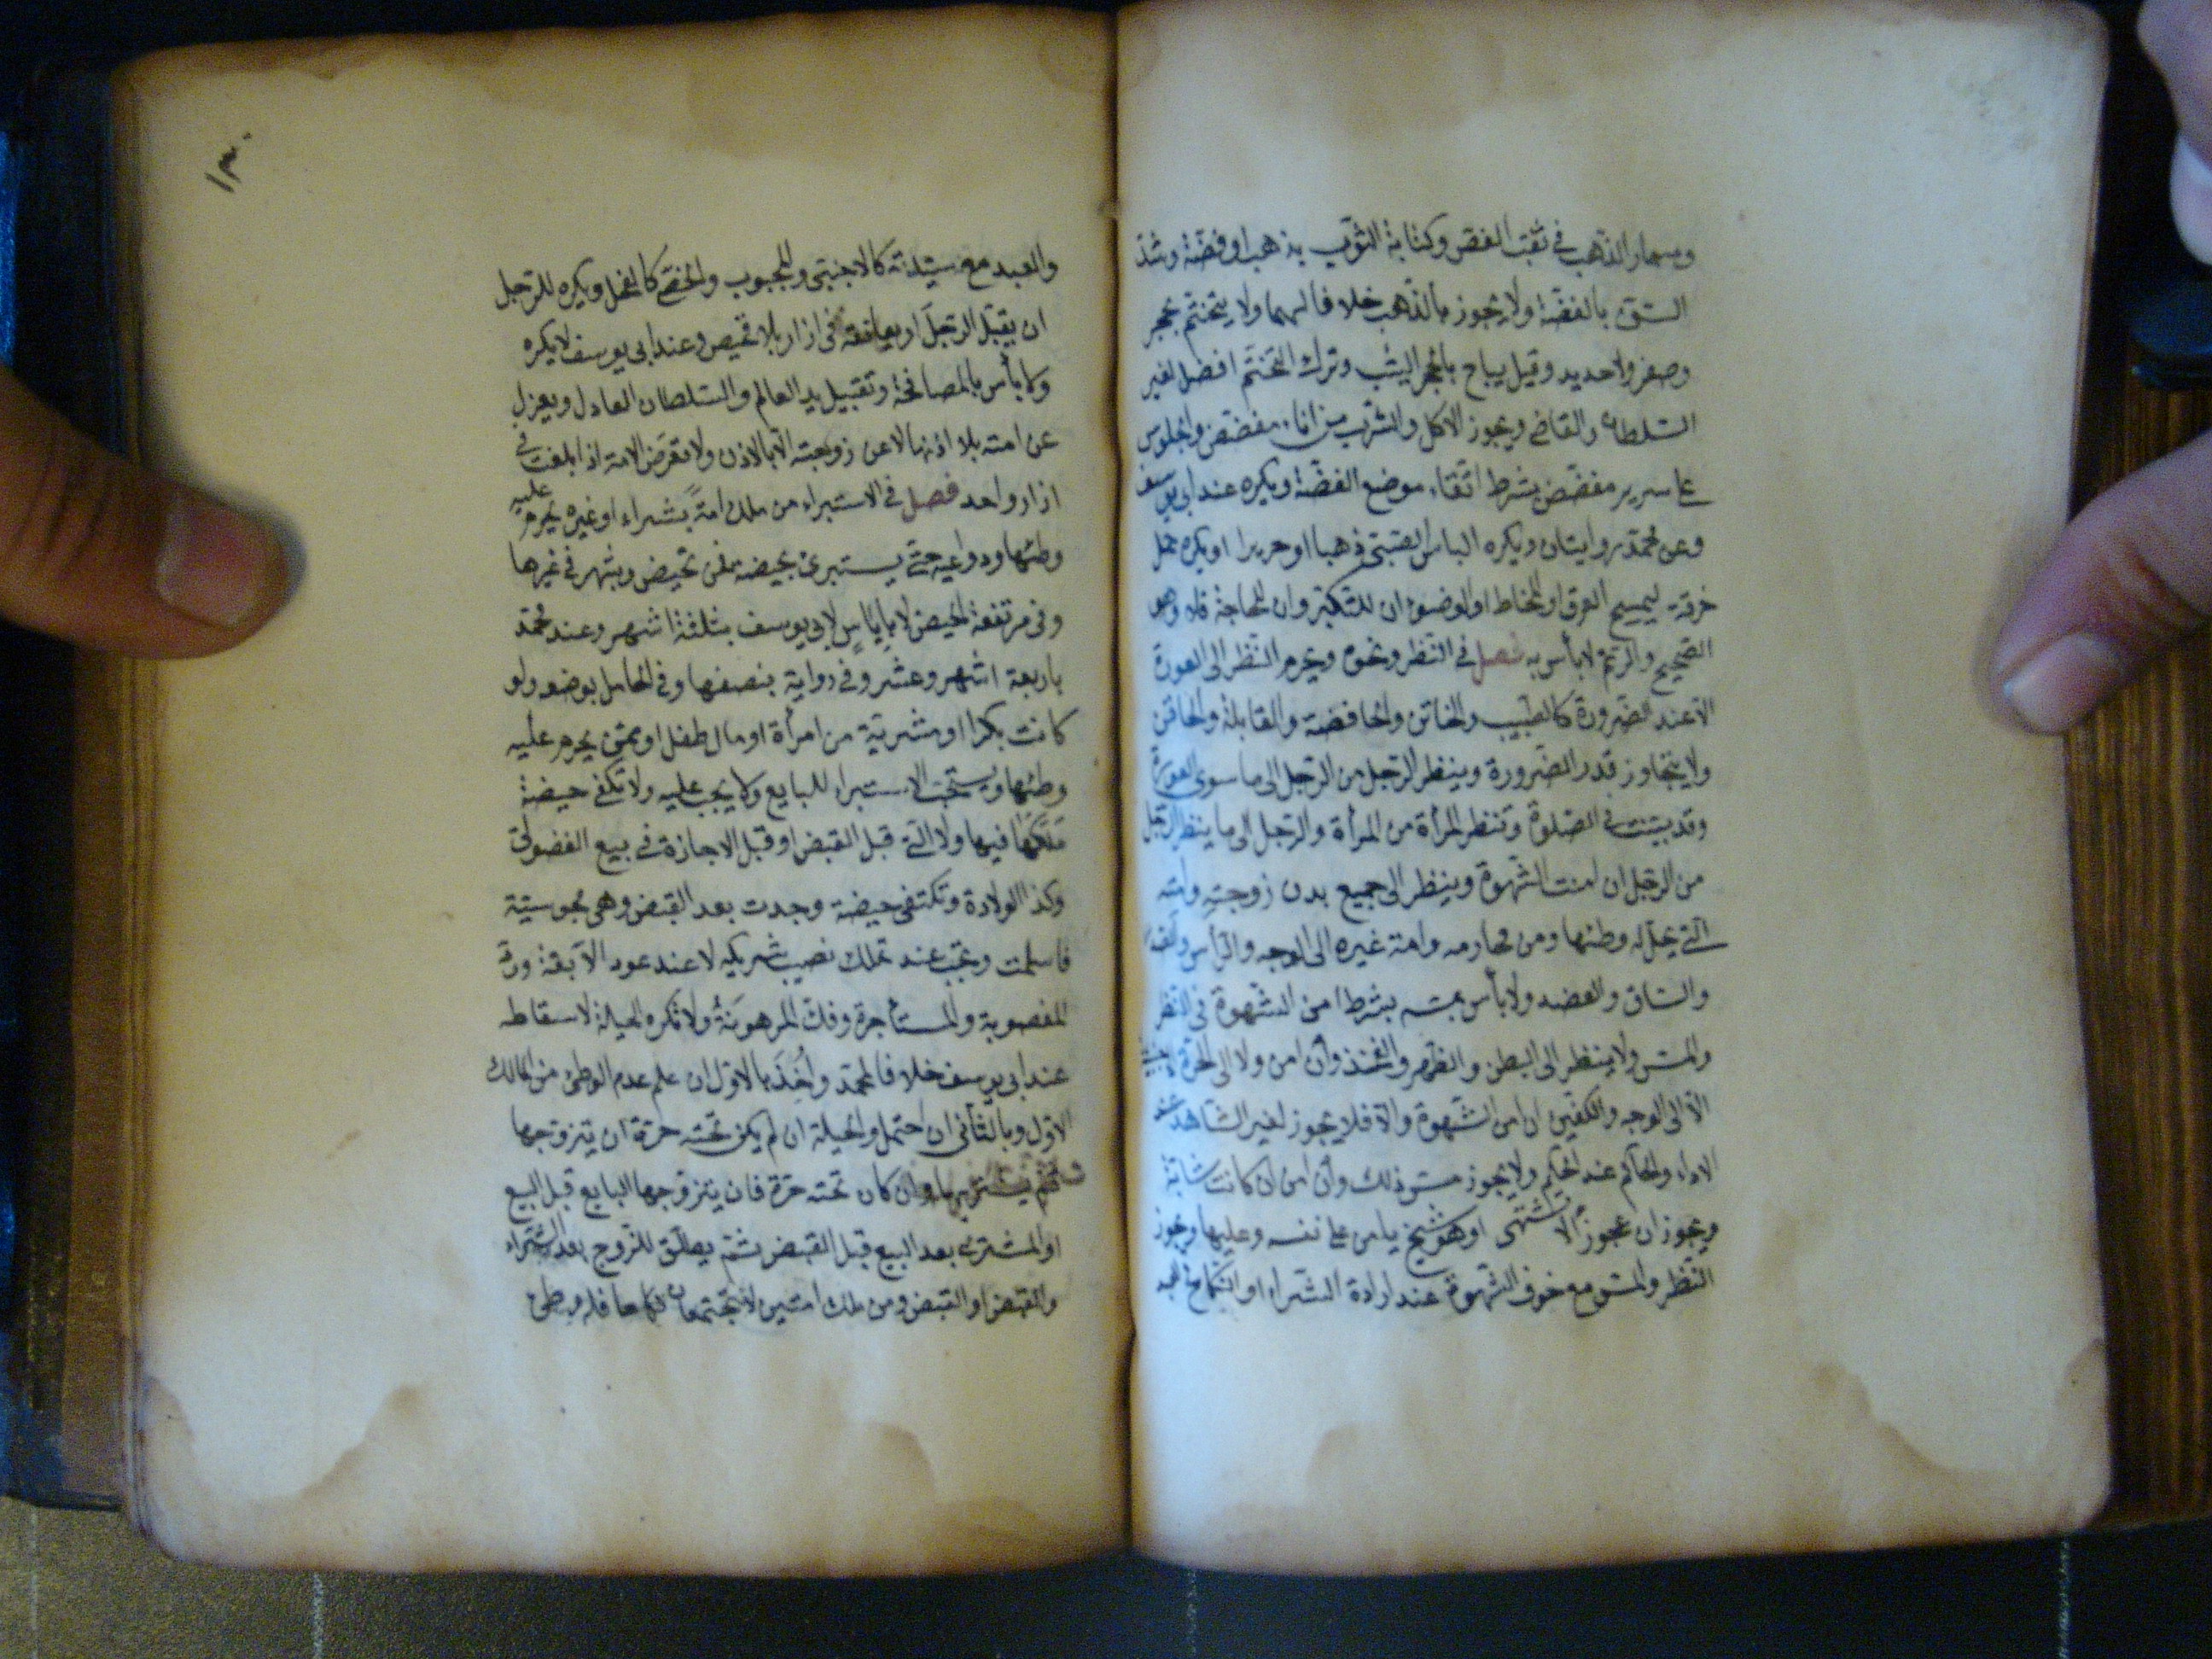 ومسمار الذهب في ثقب الفص وكتابة الثوب بذهب او فضة وشد
السن بالفضة ولا يجوز بالذهب خلافا لهما ولا يتختم بحجر
وصفر ولا حديد وقيل يباح بالحجر اليشب وترك التختم افضل لغير
السلطان والقاضي ويجوز الاكل والشرب من اناء مفضض والجلوس
على سرير مفضض بشرط اتقاء موضع الفضة ويكره عند ابي يوسف
وعن محمد روايتان ويكره الباس الصبي ذهبا او حريرا ويكره حمل
خرقة ليمسح العرق او المخاط او الوضوء ان للتكبر وان للحاجة فلا وهو
الصحيح والرتم لا بأس به فصل في النظر ونحوه ويحرم النظر الى العورة
الا عند الضرورة كالطبيب والخاتن والخافضة والقابلة والحاقن
ولا يتجاوز قدر الضرورة وينظر الرجل من الرجل الى ما سوى العورة
وقد بينت في الصلوة وتنظر المرأة من المرأة والرجل الى ما ينظر الرجل
من الرجل ان امنت الشهوة وينظر الى جميع بدن زوجته وامته
التي يحل له وطئها ومن محارمه وامة غيره الى الوجه والرأس والصدر
والساق والعضد ولا بأس بمسه بشرط امن الشهوة في النظر
والمس ولا ينظر الى البطن والظهر والفخذ وان امن ولا الى الحرة الاجنبية
الا الى الوجه والكفين ان امن الشهوة والا فلا يجوز لغير الشاهد عند
الاداء والحاكم عند الحكم ولا يجوز مس ذلك وان امن ان كانت شابة
ويجوز ان عجوزا لا تشتهى او هو شيخ يامن على نفسه وعليها ويجوز
النظر والمس مع خوف الشهوة عند ارادة الشراء او النكاح
١٣٠
والعبد مع سيدته كالاجنبي والمجبوب والخصي كالفحل ويكره للرجل
ان يقبل الرجل او يعانقه في ازار بلا قميص وعند ابي يوسف لا يكره
ولا بأس بالمصافحة وتقبيل يد العالم والسلطان العادل ويعزل
عن امته بلا اذنها لا عن زوجته الا بالاذن ولا تعرض الامة اذا بلغت في
ازار واحد فصل في الاستبراء من ملك امة بشراء او غيره يحرم عليه
وطئها ودواعيه حتى يستبرئ بحيضة فمن تحيض وبشهر في غيرها
وفي مرتفعة الحيض لا باياس لابي يوسف بثلثة اشهر وعند محمد
باربعة اشهر وعشر وفي رواية بنصفها وفي الحامل بوضعه ولو
كانت بكرا او مشرية من امرأة او مال طفل او ممن يحرم عليه
وطئها ويستحب الاستبراء للبايع ولا يجب عليه ولا تكفي حيضة
ملكها فيها ولا التي قبل القبض او قبل الاجازة في بيع الفضولي
وكذا الولادة وتكتفي حيضة وجدت بعد القبض وهي مجوسية
فاسلمت وتجب عند تملك نصيب شريكه لا عند عود الآبقة ورد
المغصوبة والمستأجرة وفك المرهونة ولا تكره الحيلة لاسقاطه
عند ابي يوسف خلافا لمحمد واخذ بالاول ان علم عدم الوطئ من المالك
الاول وبالثاني ان احتمل والحيلة ان لم يكن تحته حرة ان يتزوجها
ثم يشتريها وان كان تحته حرة فان يتزوجها البايع قبل البيع
او المشتري بعد البيع قبل القبض ثم يطلق الزوج بعد الشراء
والقبض او القبض ومن ملك امتين لا تجتمعان نكاحا فله وطئ